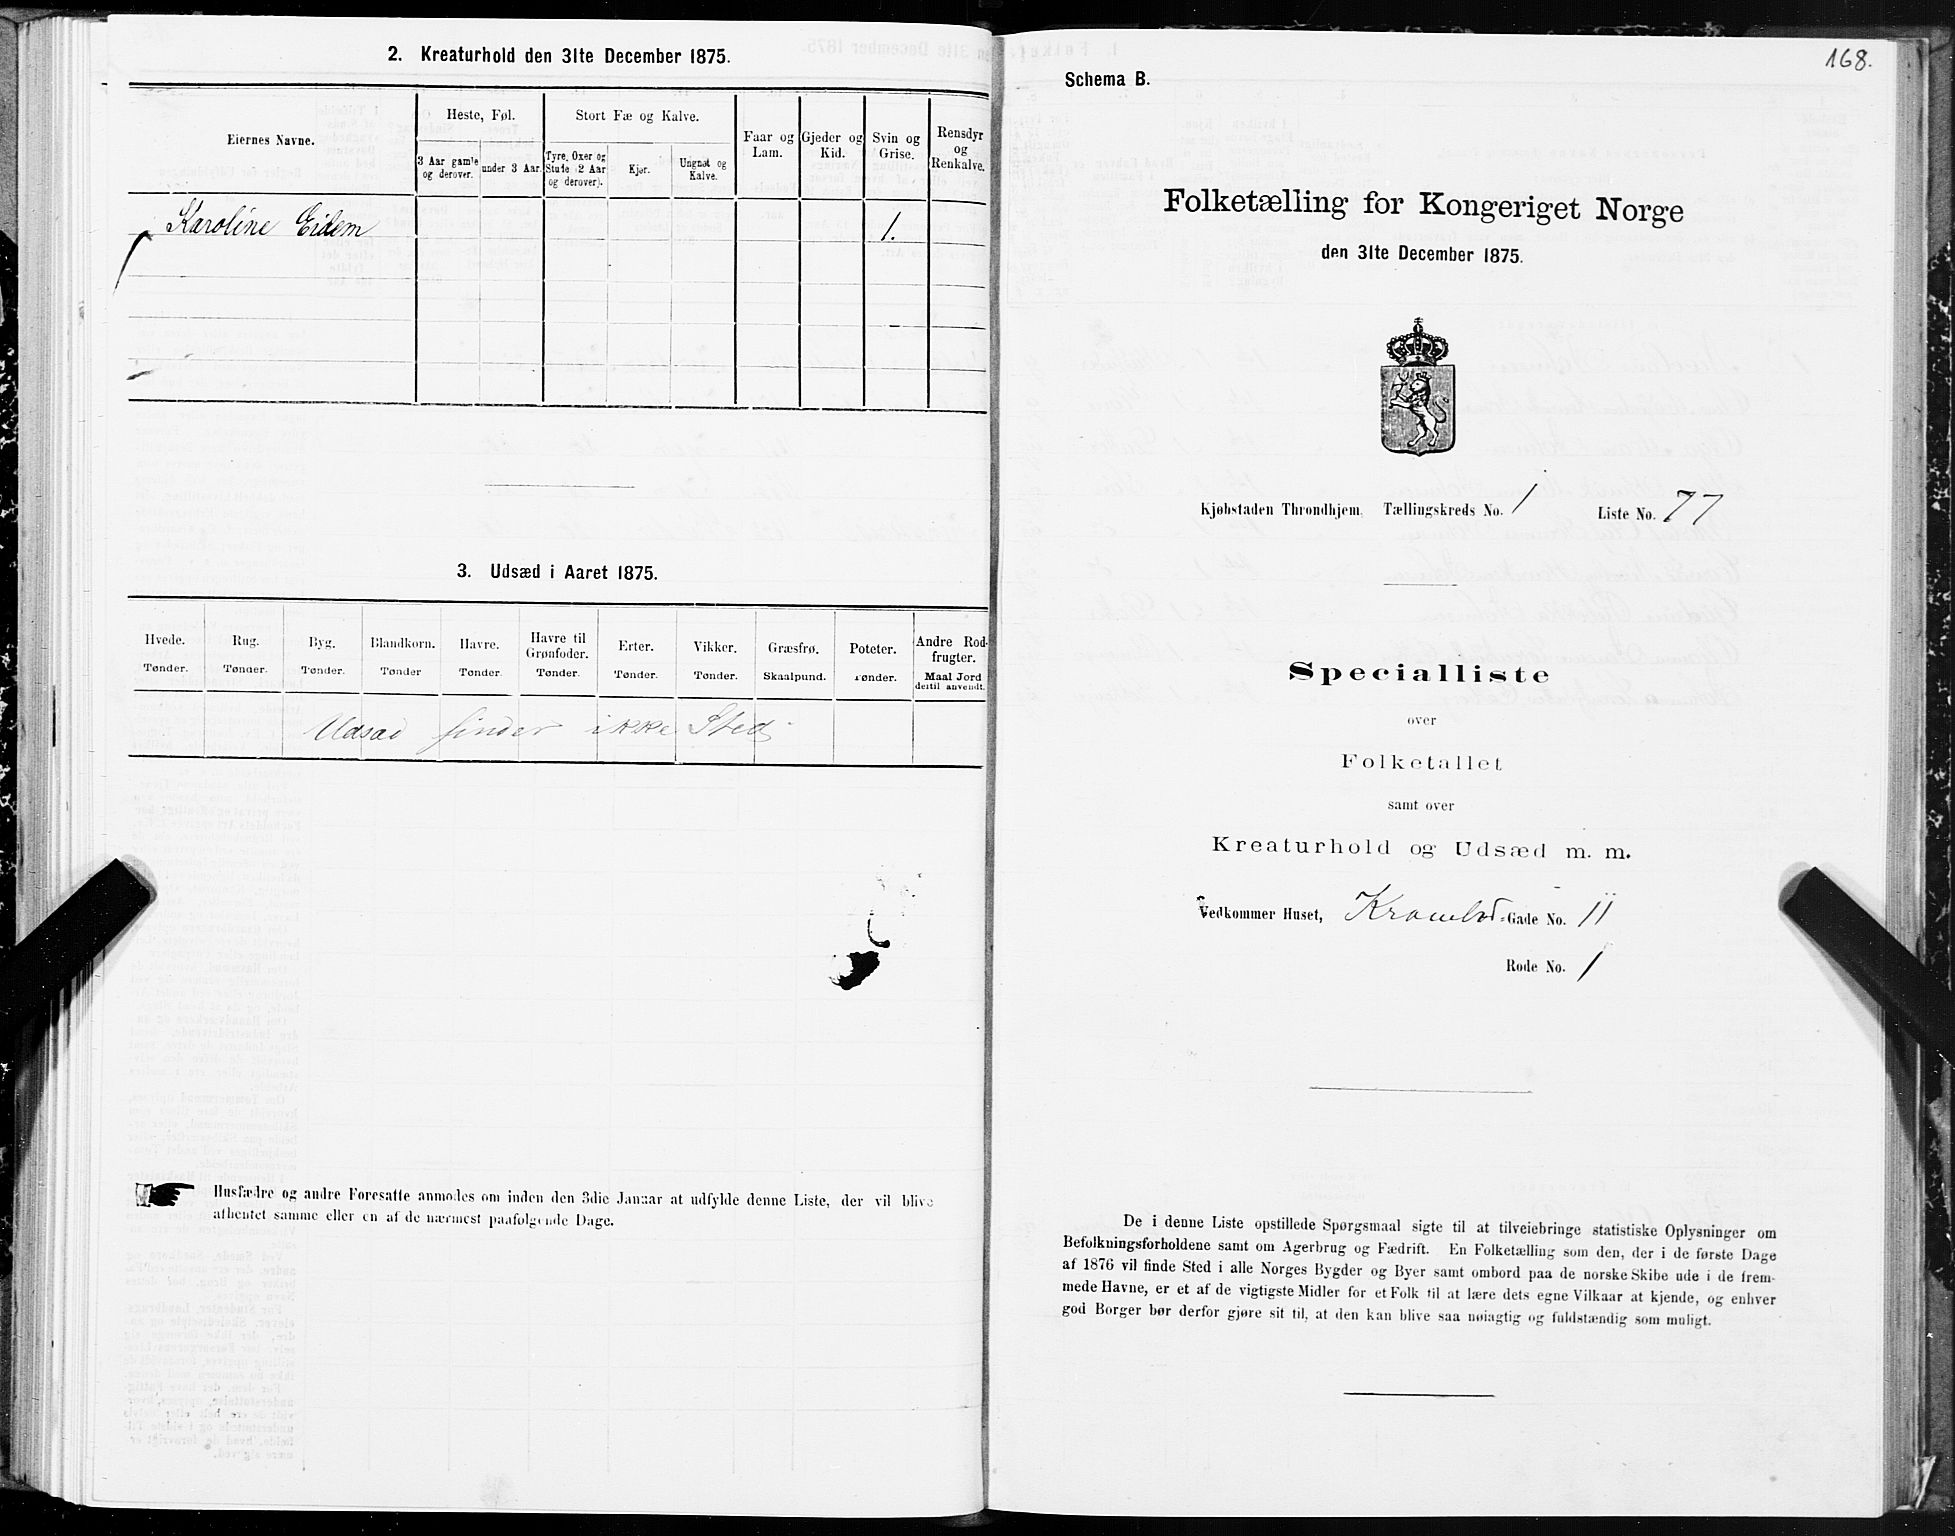 2. Kreaturhold den 31te December 1875.
Eiernes Navne.
Heste, Føl.
Stort Fæ og Kalve.
Faar og Lam.
Gjeder og Kid.
Svin og Grise.
Rensdyr og Renkalve.
3 Aar gamle og derover.
under 3 Aar.
Tyre, Oxer og Stude (2 Aar og derover).
Kjør.
Ungnøt og Kalve.
Karoline Eidem 1.
3. Udsæd i Aaret 1875.
Hvede. Rug. Byg. Blandkorn. Havre. Havre til Grønfoder. Erter. Vikker. Græsfrø. Poteter. Andre Rodfrugter.
Tønder. Tønder. Tønder. Tønder Tønder. Tønder. Tønder. Tønder. Skaalpund. Tønder. Maal Jord dertil anvendt.
Udsæd finder ikke Sted
Husfædre og andre Foresatte anmodes om inden den 3die Januar at udfylde denne Liste, der vil blive
afhentet samme eller en af de nærmest paafølgende Dage.
168.
Schema B.
Folketælling for Kongeriget Norge
den 31te December 1875.
Kjøbstaden Throndhjem. Tællingskreds No. 1 Liste No. 77
Specialliste
over
Folketallet
samt over
Kreaturhold og Udsæd m. m.
Vedkommer Huset, Krambod-Gade No. 11
Rode No. 1
De i denne Liste opstillede Spørgsmaal sigte til at tilveiebringe statistiske Oplysninger om
Befolkningsforholdene samt om Agerbrug og Fædrift. En Folketælling som den, der i de første Dage
af 1876 vil finde Sted i alle Norges Bygder og Byer samt ombord paa de norske Skibe ude i de frem-
mede Havne, er et af de vigtigste Midler for et Folk til at lære dets egne Vilkaar at kjende, og enhver
god Borger bør derfor gjøre sit til, at den kan blive saa nøiagtig og fuldstændig som muligt.